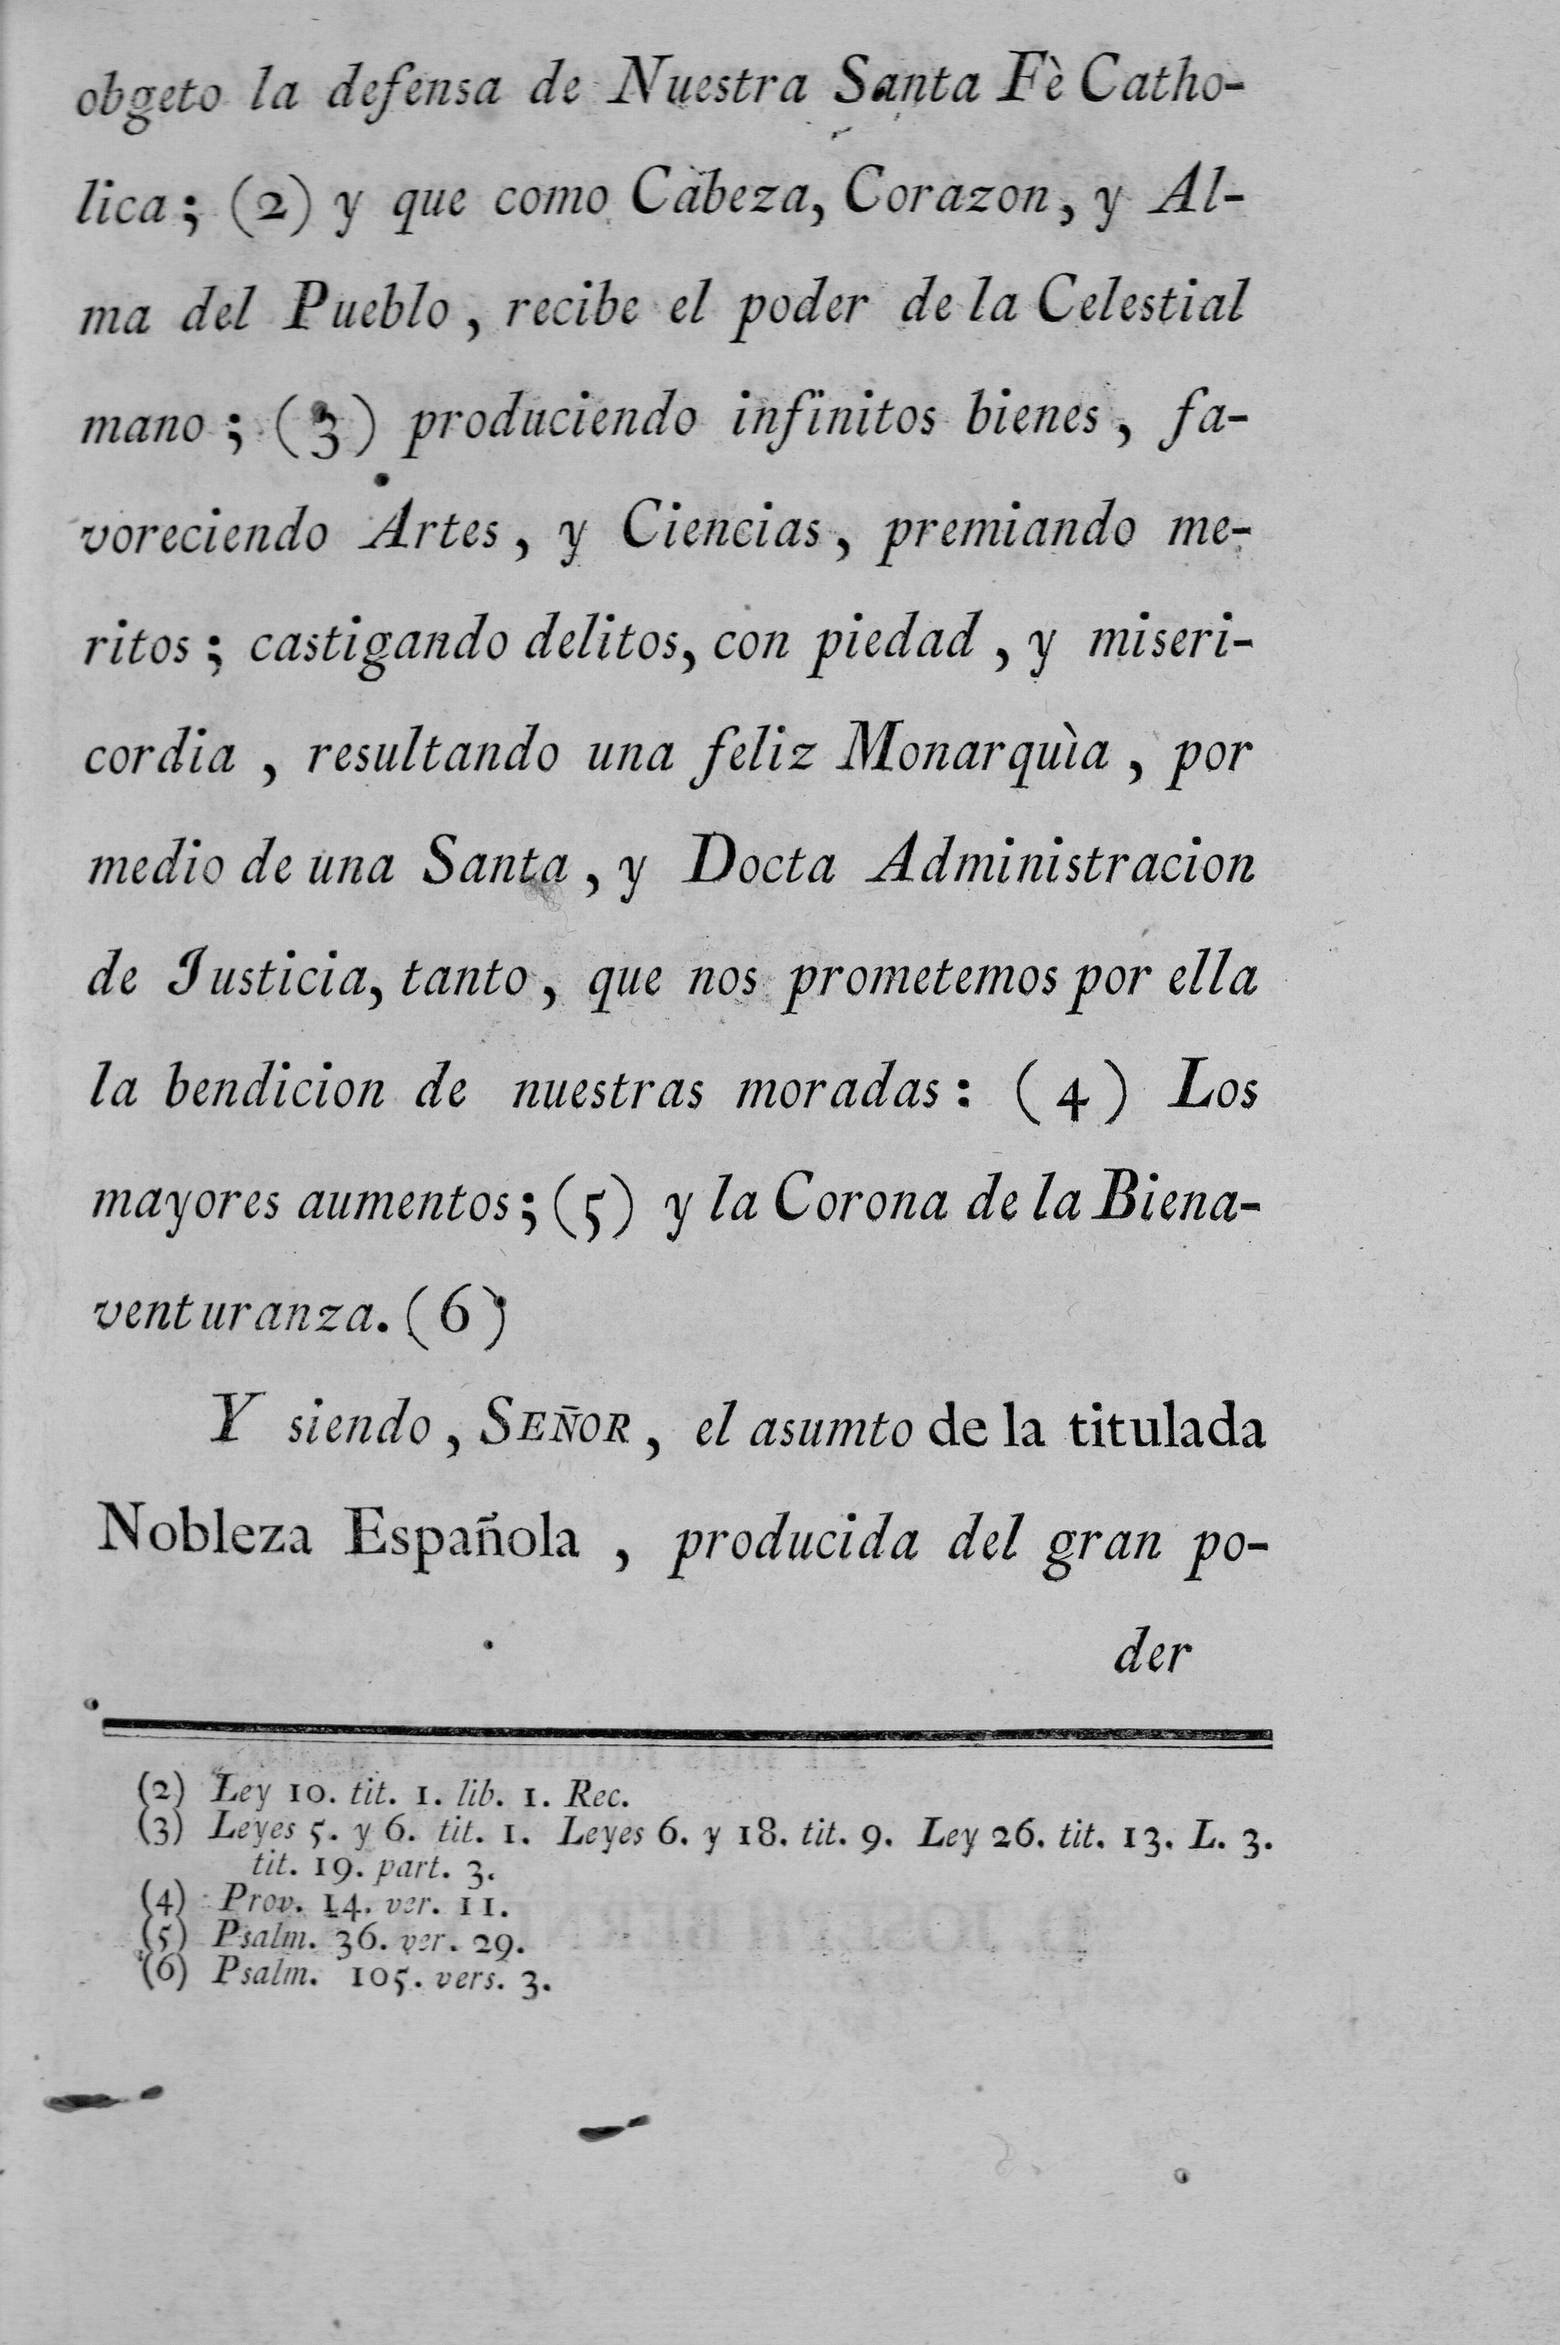 obgeto la defensa de Nuestra Santa Fè Catho-
lica; (2) y que como Cabeza, Corazon, y Al-
ma del Pueblo, recibe el poder de la Celestial
mano; (3) produciendo infinitos bienes, fa-
voreciendo Artes, y Ciencias, premiando me-
ritos; castigando delitos, con piedad, y miseri-
cordia, resultando una feliz Monarquìa, por
medio de una Santa, y Docta Administracion
de Justicia, tanto, que nos prometemos por ella
la bendicion de nuestras moradas: (4) Los
mayores aumentos; (5) y la Corona de la Biena-
venturanza. (6)
Y siendo, SEÑOR, el asumto de la titulada
Nobleza Española, producida del gran po-
der
(2) Ley 10. tit. 1. lib. 1. Rec.
(3) Leyes 5. y 6. tit. 1. Leyes 6. y 18. tit. 9. Ley 26. tit. 13. L. 3.
tit. 19. part. 3.
(4) Prov. 14. ver. 11.
(5) Psalm. 36. ver. 29.
(6) Psalm. 105. vers. 3.